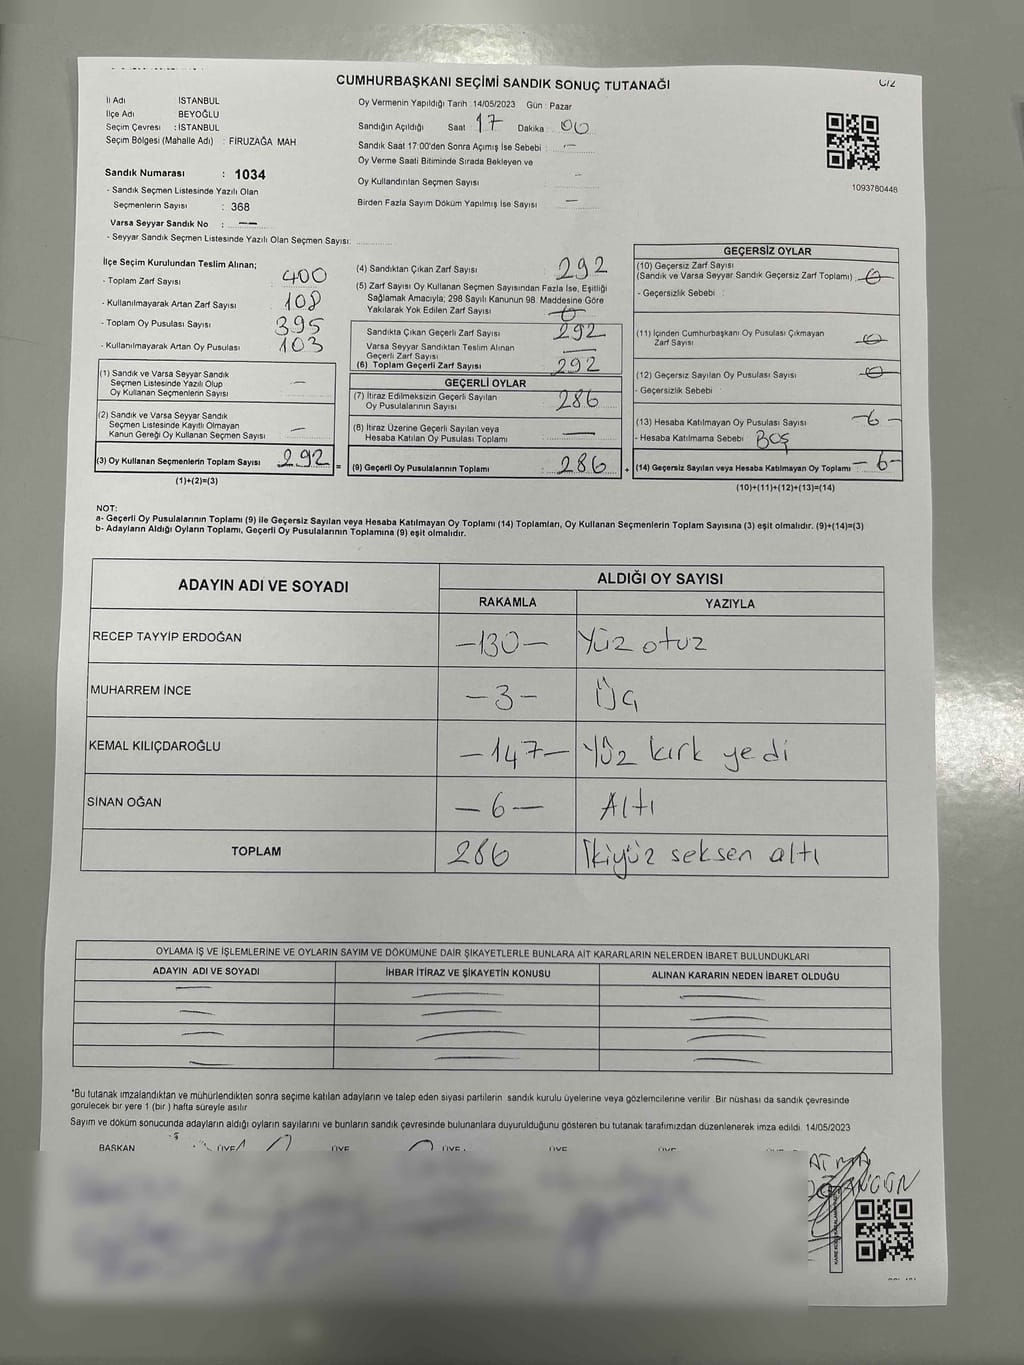 CUMHURBAŞKANI SEÇİMİ SANDIK SONUÇ TUTANAĞI
C/2
İl Adı İSTANBUL
İlçe Adı BEYOĞLU
Seçim Çevresi : İSTANBUL
Seçim Bölgesi (Mahalle Adı) : FİRUZAĞA MAH
Sandık Numarası : 1034
- Sandık Seçmen Listesinde Yazılı Olan
Seçmenlerin Sayısı : 368
Varsa Seyyar Sandık No : —
- Seyyar Sandık Seçmen Listesinde Yazılı Olan Seçmen Sayısı:
Oy Vermenin Yapıldığı Tarih 14/05/2023 Gün : Pazar
Sandığın Açıldığı Saat : 17 Dakika : 00
Sandık Saat 17:00'den Sonra Açımış İse Sebebi : —
Oy Verme Saati Bitiminde Sırada Bekleyen ve
Oy Kullandırılan Seçmen Sayısı –
Birden Fazla Sayım Döküm Yapılmış İse Sayısı —
1093780448
İlçe Seçim Kurulundan Teslim Alınan;
- Toplam Zarf Sayısı 400
- Kullanılmayarak Artan Zarf Sayısı 108
- Toplam Oy Pusulası Sayısı 395
- Kullanılmayarak Artan Oy Pusulası 103
(1) Sandık ve Varsa Seyyar Sandık
Seçmen Listesinde Yazılı Olup
Oy Kullanan Seçmenlerin Sayısı —
(2) Sandık ve Varsa Seyyar Sandık
Seçmen Listesinde Kayıtlı Olmayan
Kanun Gereği Oy Kullanan Seçmen Sayısı —
(3) Oy Kullanan Seçmenlerin Toplam Sayısı 292 =
(1)+(2)=(3)
(4) Sandıktan Çıkan Zarf Sayısı 292
(5) Zarf Sayısı Oy Kullanan Seçmen Sayısından Fazla İse, Eşitliği
Sağlamak Amacıyla; 298 Sayılı Kanunun 98. Maddesine Göre
Yakılarak Yok Edilen Zarf Sayısı 0
Sandıkta Çıkan Geçerli Zarf Sayısı 292
Varsa Seyyar Sandıktan Teslim Alınan
Geçerli Zarf Sayısı —
(6) Toplam Geçerli Zarf Sayısı 292
GEÇERLİ OYLAR
(7) İtiraz Edilmeksizin Geçerli Sayılan
Oy Pusulalarının Sayısı 286
(8) İtiraz Üzerine Geçerli Sayılan veya
Hesaba Katılan Oy Pusulası Toplamı —
(9) Geçerli Oy Pusulalarının Toplamı : 286 +
GEÇERSİZ OYLAR
(10) Geçersiz Zarf Sayısı
(Sandık ve Varsa Seyyar Sandık Geçersiz Zarf Toplamı) 0
- Geçersizlik Sebebi :
(11) İçinden Cumhurbaşkanı Oy Pusulası Çıkmayan
Zarf Sayısı 0
(12) Geçersiz Sayılan Oy Pusulası Sayısı 0
- Geçersizlik Sebebi
(13) Hesaba Katılmayan Oy Pusulası Sayısı –6–
- Hesaba Katılmama Sebebi : BOŞ
(14) Geçersiz Sayılan veya Hesaba Katılmayan Oy Toplamı –6–
(10)+(11)+(12)+(13)=(14)
NOT:
a- Geçerli Oy Pusulalarının Toplamı (9) ile Geçersiz Sayılan veya Hesaba Katılmayan Oy Toplamı (14) Toplamları, Oy Kullanan Seçmenlerin Toplam Sayısına (3) eşit olmalıdır. (9)+(14)=(3)
b- Adayların Aldığı Oyların Toplamı, Geçerli Oy Pusulalarının Toplamına (9) eşit olmalıdır.
ADAYIN ADI VE SOYADI ALDIĞI OY SAYISI
RAKAMLA YAZIYLA
RECEP TAYYİP ERDOĞAN –130– Yüz otuz
MUHARREM İNCE –3– Üç
KEMAL KILIÇDAROĞLU –147– Yüz kırk yedi
SİNAN OĞAN –6– Altı
TOPLAM 286 İkiyüz seksen altı
OYLAMA İŞ VE İŞLEMLERİNE VE OYLARIN SAYIM VE DÖKÜMÜNE DAİR ŞİKAYETLERLE BUNLARA AİT KARARLARIN NELERDEN İBARET BULUNDUKLARI
ADAYIN ADI VE SOYADI İHBAR İTİRAZ VE ŞİKAYETİN KONUSU ALINAN KARARIN NEDEN İBARET OLDUĞU
*Bu tutanak imzalandıktan ve mühürlendikten sonra seçime katılan adayların ve talep eden siyasi partilerin sandık kurulu üyelerine veya gözlemcilerine verilir. Bir nüshası da sandık çevresinde
görülecek bir yere 1 (bir ) hafta süreyle asılır
Sayım ve döküm sonucunda adayların aldığı oyların sayılarını ve bunların sandık çevresinde bulunanlara duyurulduğunu gösteren bu tutanak tarafımızdan düzenlenerek imza edildi. 14/05/2023
BAŞKAN ÜYE ÜYE ÜYE ÜYE ÜYE